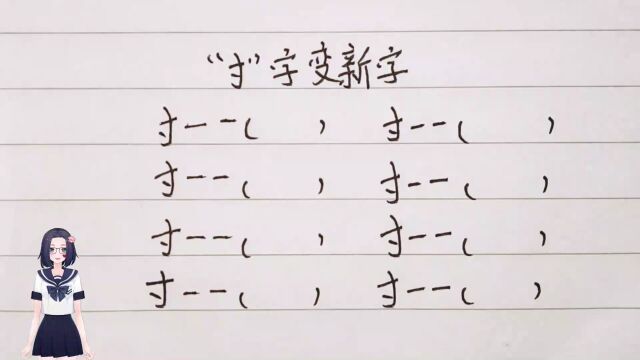 “寸”字变新字
寸--( ) 寸--( )
寸--( ) 寸--( )
寸--( ) 寸--( )
寸--( ) 寸--( )